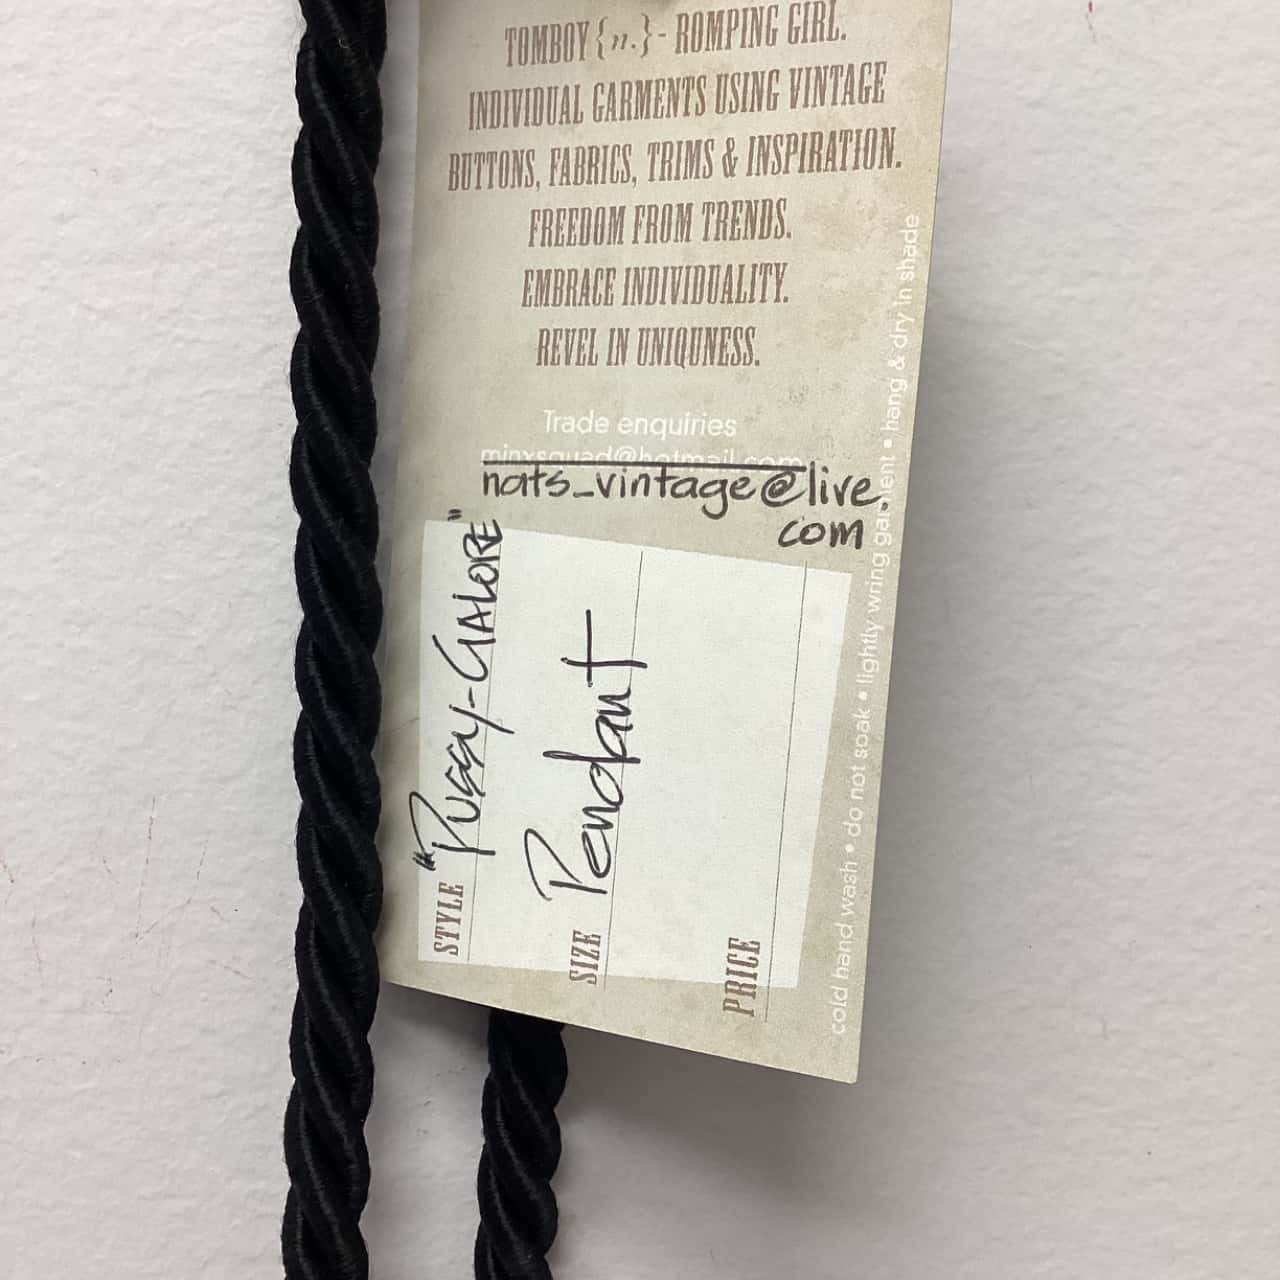 TOMBOY {n.} - ROMPING GIRL.
INDIVIDUAL GARMENTS USING VINTAGE
BUTTONS, FABRICS, TRIMS & INSPIRATION.
FREEDOM FROM TRENDS.
EMBRACE INDIVIDUALITY.
REVEL IN UNIQUNESS.
Trade enquiries
minxsquad@hotmail.com
nats_vintage@live.
com
STYLE "PUSSY-GALORE"
SIZE Pendant
PRICE
cold hand wash • do not soak • lightly wring garment • hang & dry in shade